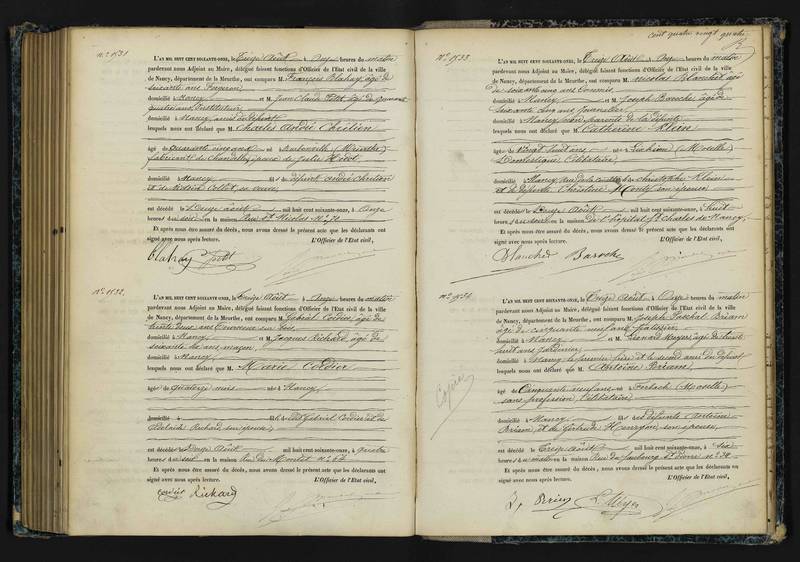 cent quatre vingt quatre
n° 1531.
L'AN MIL HUIT CENT SOIXANTE-ONZE, le Treize Août à Onze heures du matin
pardevant nous Adjoint au Maire, délégué faisant fonctions d'Officier de l'Etat civil de la ville
de Nancy, département de la Meurthe, ont comparu M. François Blahay âgé de
soixante ans
domicilié à Nancy et M. Jean Claude Petit âgé de quarante
quatre ans, Instituteur
domicilié à Nancy, amis du défunt
lesquels nous ont déclaré que M. Charles André Chrétien
âgé de Quarante cinq ans né à (Meurthe)
fabricant de chandelles, époux de
domicilié à Nancy et défunt André Chrétien
et de Collot, sa veuve
est décédé le Douze Août mil huit cent soixante-onze, à Onze
heures du soir en la maison Rue St Nicolas N° 70
Et après nous être assuré du décès, nous avons dressé le présent acte que les déclarants ont
signé avec nous après lecture. L'Officier de l'Etat civil,
Blahay Petit
N° 1532.
L'AN MIL HUIT CENT SOIXANTE-ONZE, le Treize Août à Onze heures du matin
pardevant nous Adjoint au Maire, délégué faisant fonctions d'Officier de l'Etat civil de la ville
de Nancy, département de la Meurthe, ont comparu M. Gabriel Cordier âgé de
trente deux ans Tourneur sur bois
domicilié à Nancy et M. Jacques Richard âgé de
soixante six ans maçon
domicilié à Nancy
lesquels nous ont déclaré que M. Marie Cordier
âgée de Quatorze mois née à Nancy
domicilié à de Gabriel Cordier et de
Richard, son épouse
est décédée le Douze Août mil huit cent soixante-onze, à quatre
heures du soir en la maison Rue du Montet N° 64
Et après nous être assuré du décès, nous avons dressé le présent acte que les déclarants ont
signé avec nous après lecture. L'Officier de l'Etat civil,
Cordier Richard
N° 1533.
L'AN MIL HUIT CENT SOIXANTE-ONZE, le Treize Août à Onze heures du matin
pardevant nous Adjoint au Maire, délégué faisant fonctions d'Officier de l'Etat civil de la ville
de Nancy, département de la Meurthe, ont comparu M. Nicolas Blanchet âgé
de soixante cinq ans Commis
domicilié à Nancy et M. Joseph Baroche âgé de
soixante cinq ans journalier
domicilié à Nancy, non parents de la défunte
lesquels nous ont déclaré que M. Catherine Klein
âgée de Vingt huit ans née à (Moselle)
Domestique Célibataire
domiciliée à Nancy, de Christophe Klein
et de défunte Christine son épouse
est décédée le Douze Août mil huit cent soixante-onze, à huit
heures du soir en la maison de l'hôpital St Charles de Nancy,
Et après nous être assuré du décès, nous avons dressé le présent acte que les déclarants ont
signé avec nous après lecture. L'Officier de l'Etat civil,
Blanchet Baroche
N° 1534.
L'AN MIL HUIT CENT SOIXANTE-ONZE, le Treize Août à Onze heures du matin
pardevant nous Adjoint au Maire, délégué faisant fonctions d'Officier de l'Etat civil de la ville
de Nancy, département de la Meurthe, ont comparu M. Joseph Paschal
âgé de cinquante neuf ans, pâtissier
domicilié à Nancy et M. Léonard Meyer âgé de trente
huit ans jardinier
domicilié à Nancy le premier frère et le second ami du défunt
lesquels nous ont déclaré que M. Antoine
âgé de Cinquante neuf ans né à Forbach (Moselle)
sans profession, Célibataire
domicilié à Nancy de défunts Antoine
et de Gertrude son épouse,
est décédé le Treize Août mil huit cent soixante-onze, à six
heures du matin en la maison Rue du faubourg St
Et après nous être assuré du décès, nous avons dressé le présent acte que les déclarants ont
signé avec nous après lecture. L'Officier de l'Etat civil,
L. Meyer
Copier